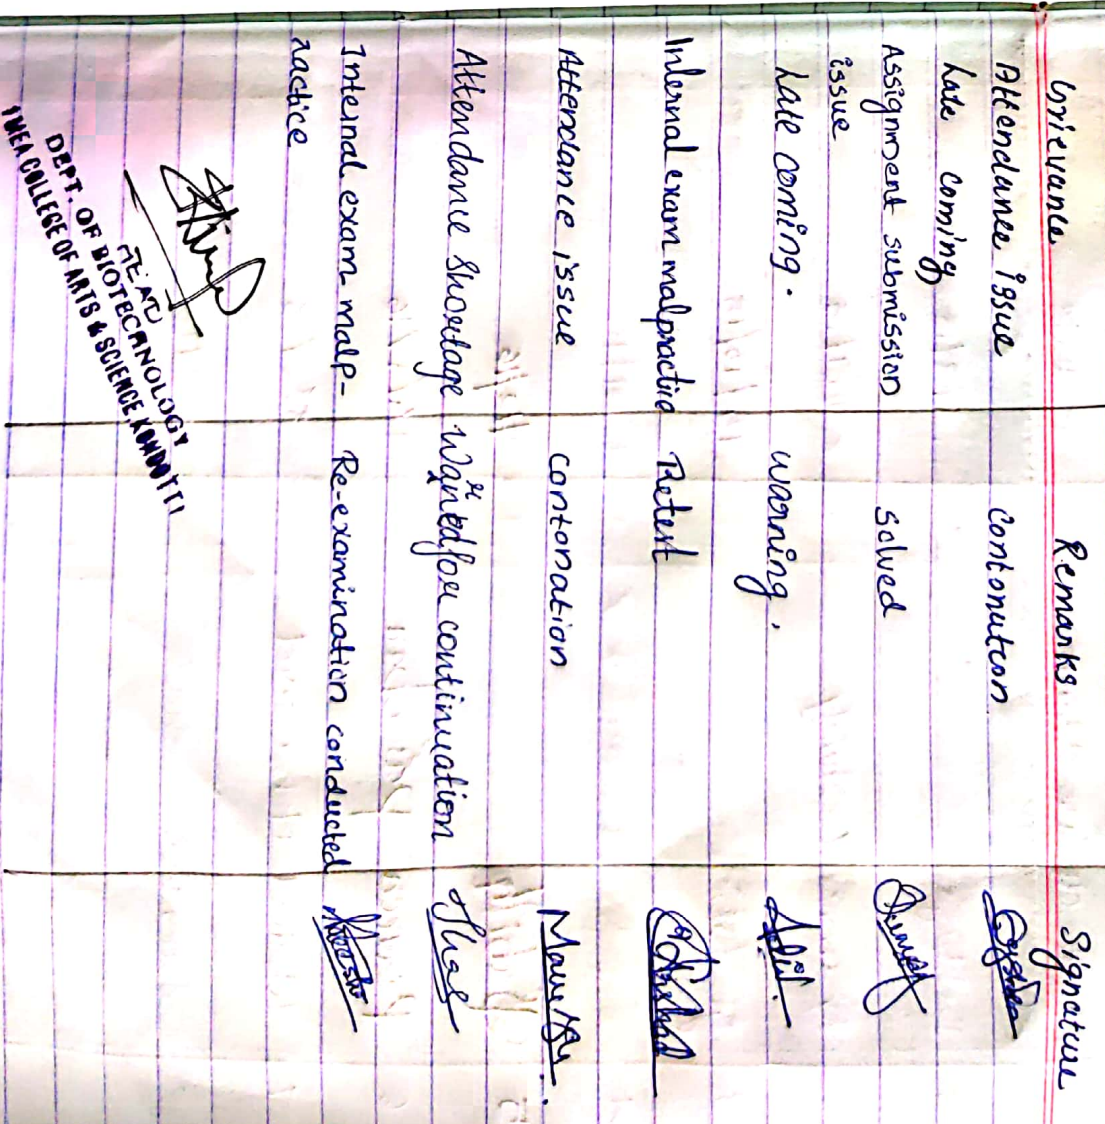 Grievance Remarks Signature
Attendance issue Contonution
Late coming
Assignment submission Solved
issue
Late coming. warning.
Internal exam malpractice Retest
Attendance issue contonation
Attendance Shortage Warned for continuation
Internal exam malp- Re-examination conducted
ractice
HEAD
DEPT. OF BIOTECHNOLOGY
COLLEGE OF ARTS & SCIENCE, KONDOTTI